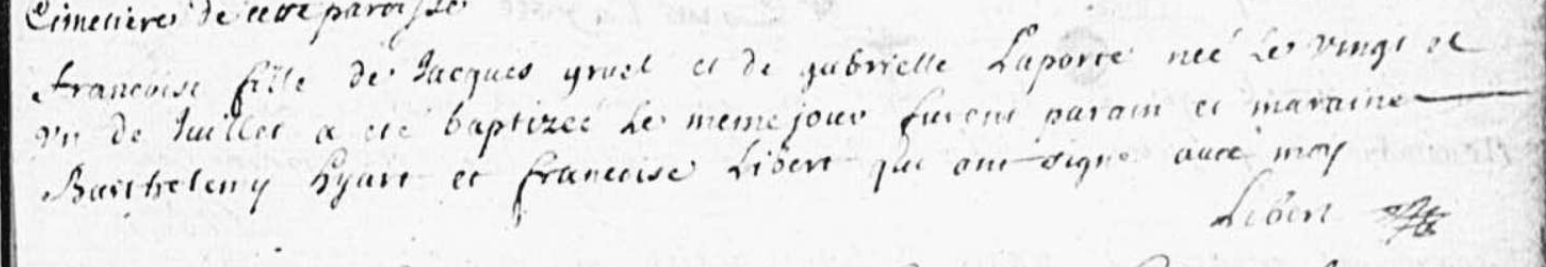 Cimetiere de cette paroisse
francoise fille de Jacques gruel et de gabrielle Laporte neé Le vingt et
vn de Juillet a eté baptizee Le meme jour furent parain et maraine
Barthelemy hyart et francoise Libert qui ont signé avec moy
Libert